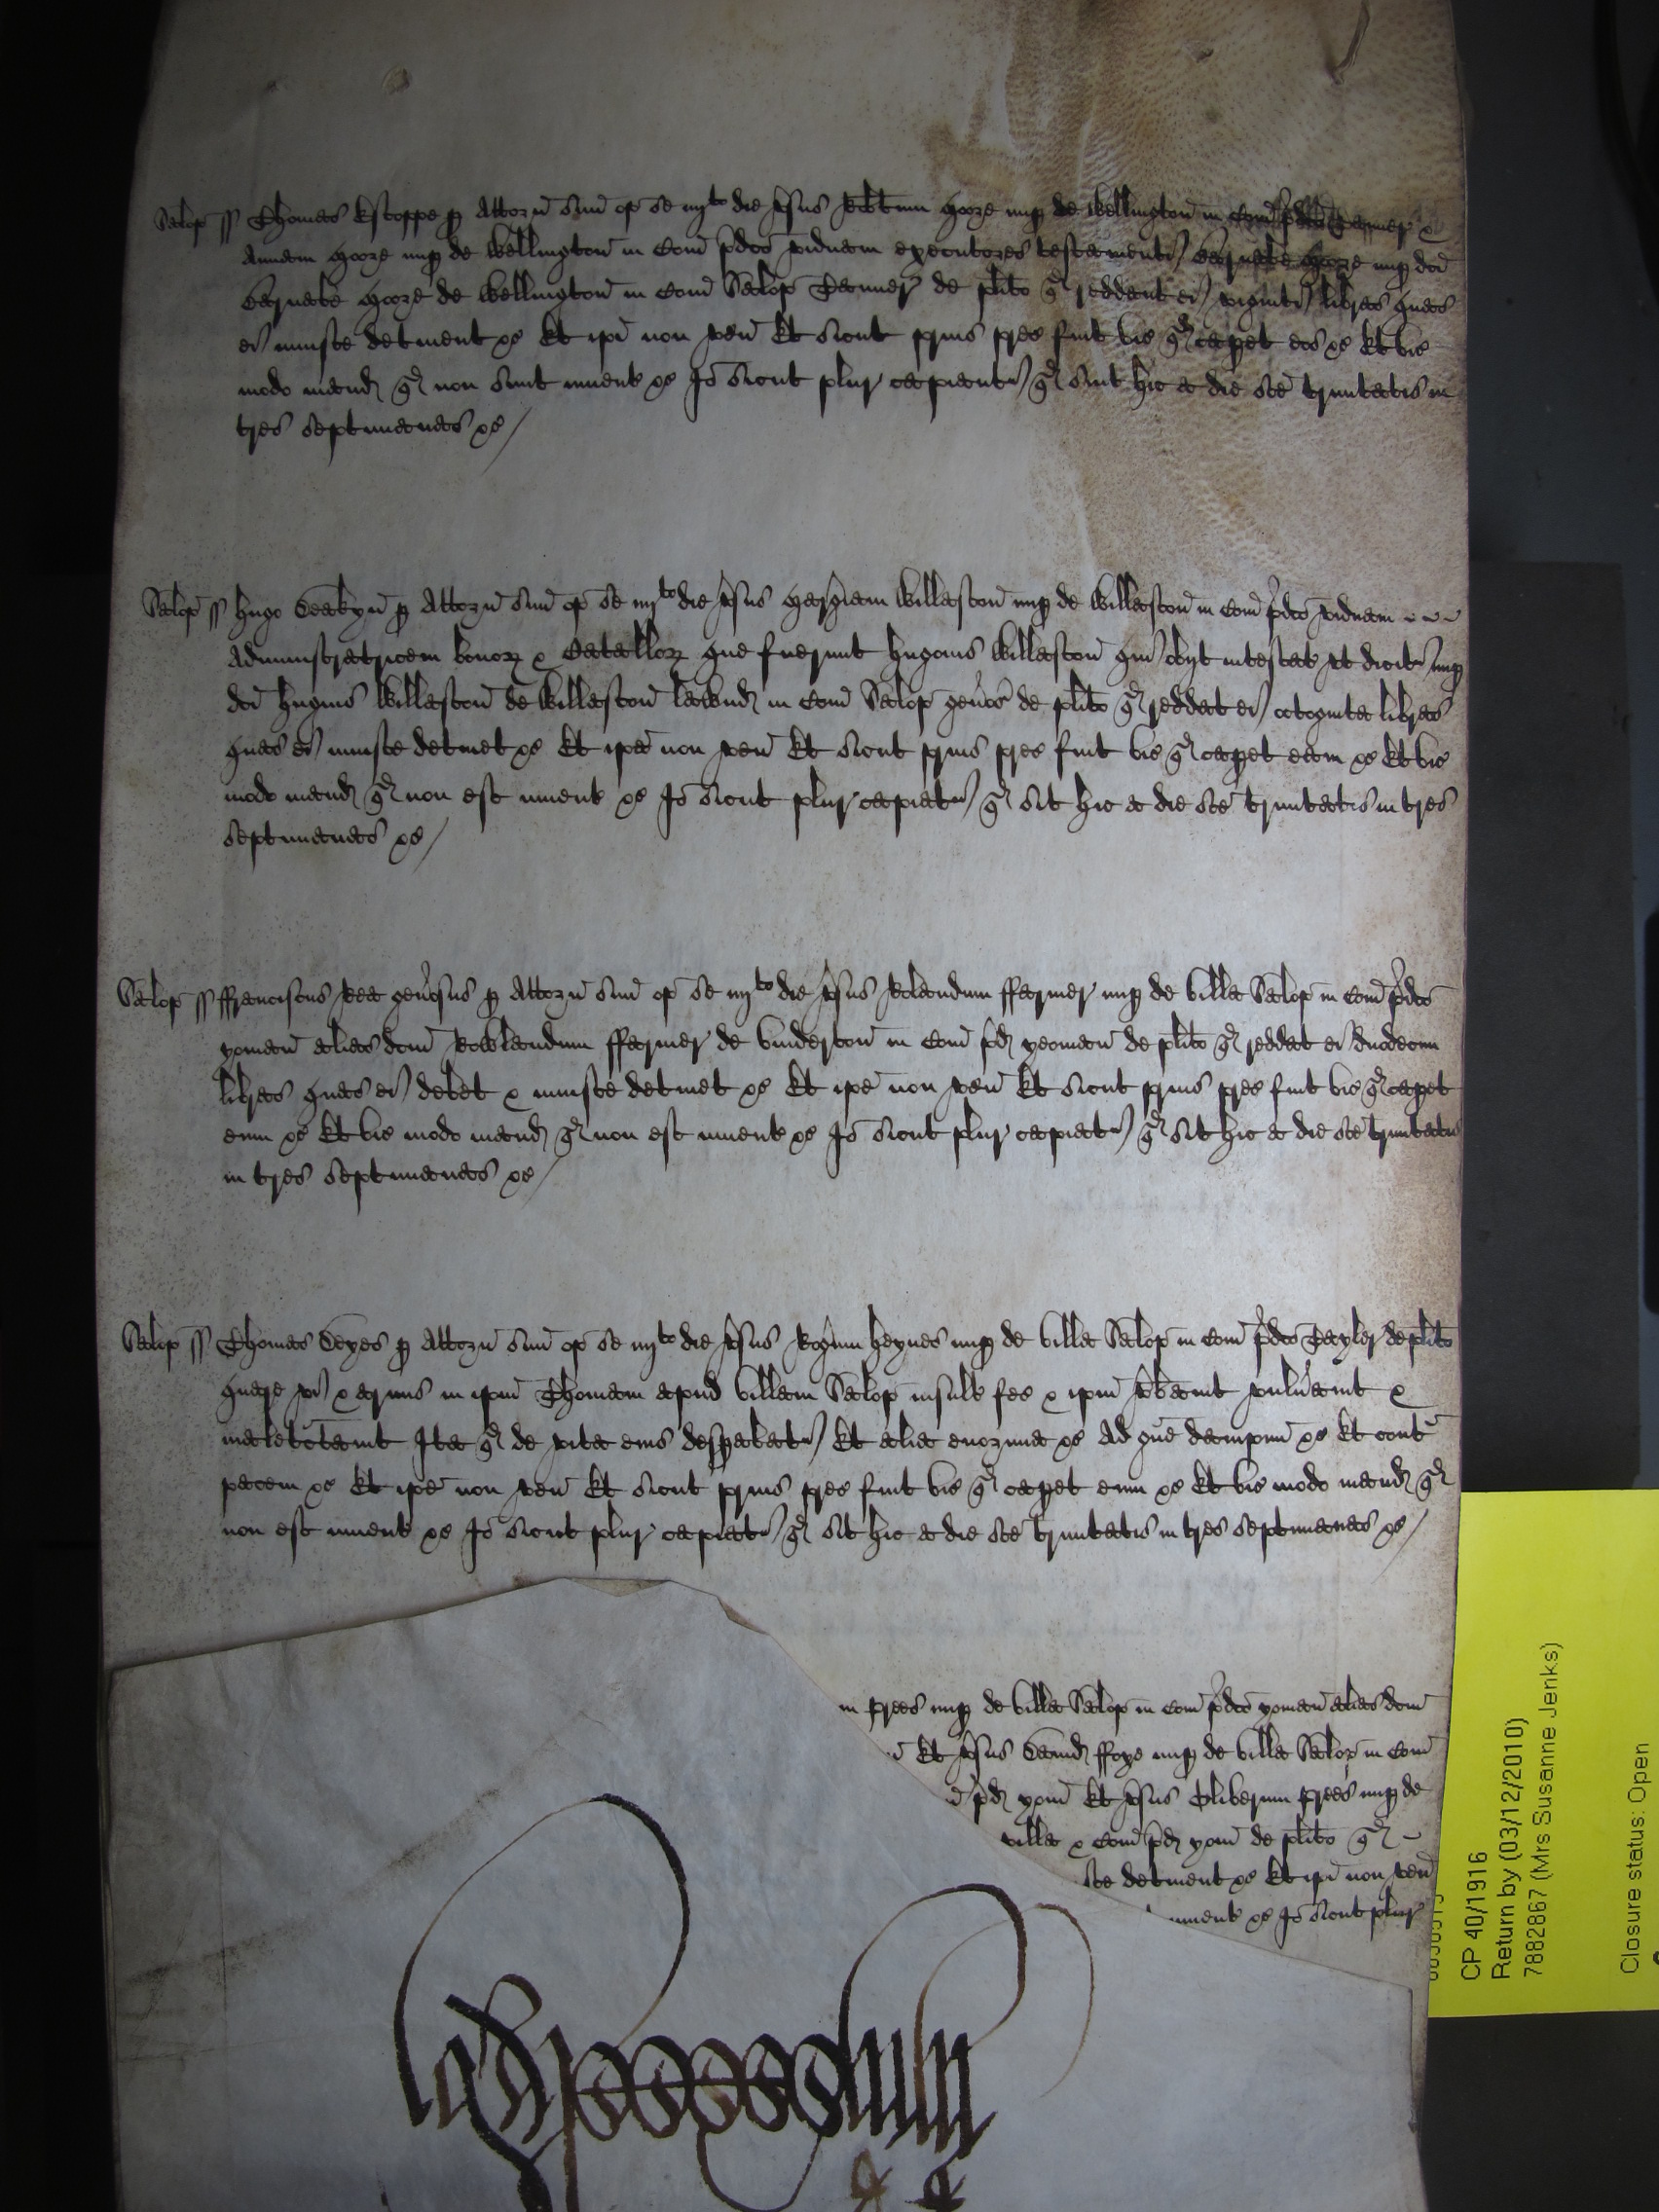 Salop ss Thomas Estoppe p Attorn suu op se iiijto die vsus Robtum Hoore nup de Wellington in Com pdco Tanner &
Annam Hoore nup de Wellington in Com pdco viduam executores testamenti nup dci
de Wellington in Com Salop Tanner de plito qd reddant ei viginti libras quas
ei iniuste detinent &c Et ipi non ven Et sicut prius pres fuit vic qd caperet eos &c Et vic
modo mand qd non sunt invent &c Io sicut plur capiant qd sint hic a die sce trinitatis in
tres septimanas &c
Salop ss Hugo Deakyn p Attorn suu op se iiijto die vsus Margiam Willaston nup de Willaston in Com pdco viduam
Administratricem bonor & Catallor que fuerunt Hugonis Willaston qui obijt intestat vt dicit nup
dci Hugonis Willaston de Willaston in Com Salop genos de plito qd reddat ei octoginta libras
quas ei iniuste detinet &c Et ipa non ven Et sicut prius pres fuit vic qd caperet eam &c Et vic
modo mand qd non est invent &c Io sicut plur capiat qd sit hic a die sce trinitatis in tres
septimanas &c
Salop ss ffranciscus genosus p Attorn suu op se iiijto die vsus Rolandum ffarmer nup de villa Salop in Com pdco
yoman alias dcm Rowlandum ffarmer de Vnderton in Com pd yeoman de plito qd reddat ei duodecim
libras quas ei debet & iniuste detinet &c Et ipe non ven Et sicut prius pres fuit vic qd caperet
eum &c Et vic modo mand qd non est invent &c Io sicut plur capiat qd sit hic a die sce trinitatis
in tres septimanas &c
Salop ss Thomas p Attorn suu op se iiijto die vsus Rogum Heynes nup de villa Salop in Com pdco Tayler de plito
quare vi & armis in ipm Thomam apud villam Salop insult fec & ipm vberavit vulnavit &
maletractavit Ita qd de vita eius desperabat Et alia enormia &c Ad gue dampnu &c Et cont
pacem &c Et ipe non ven Et sicut prius pres fuit vic qd caperet eum &c Et vic modo mand qd
non est invent &c Io sicut plur capiat qd sit hic a die sce trinitatis in tres septimanas &c
m prees nup de villa Salop in Com pdco yoman alias dcm
Et vsus David ffoxe nup de villa Salop in Com
pd yom Et vsus Oliverum prees nup de
villa & Com pd yom de plito qd
ste detinent &c Et ipi non ven
invent &c Io sicut plur
CP 40/1916
Return by (03/12/2010)
7882867 (Mrs Susanne Jenks)
Closure status: Open